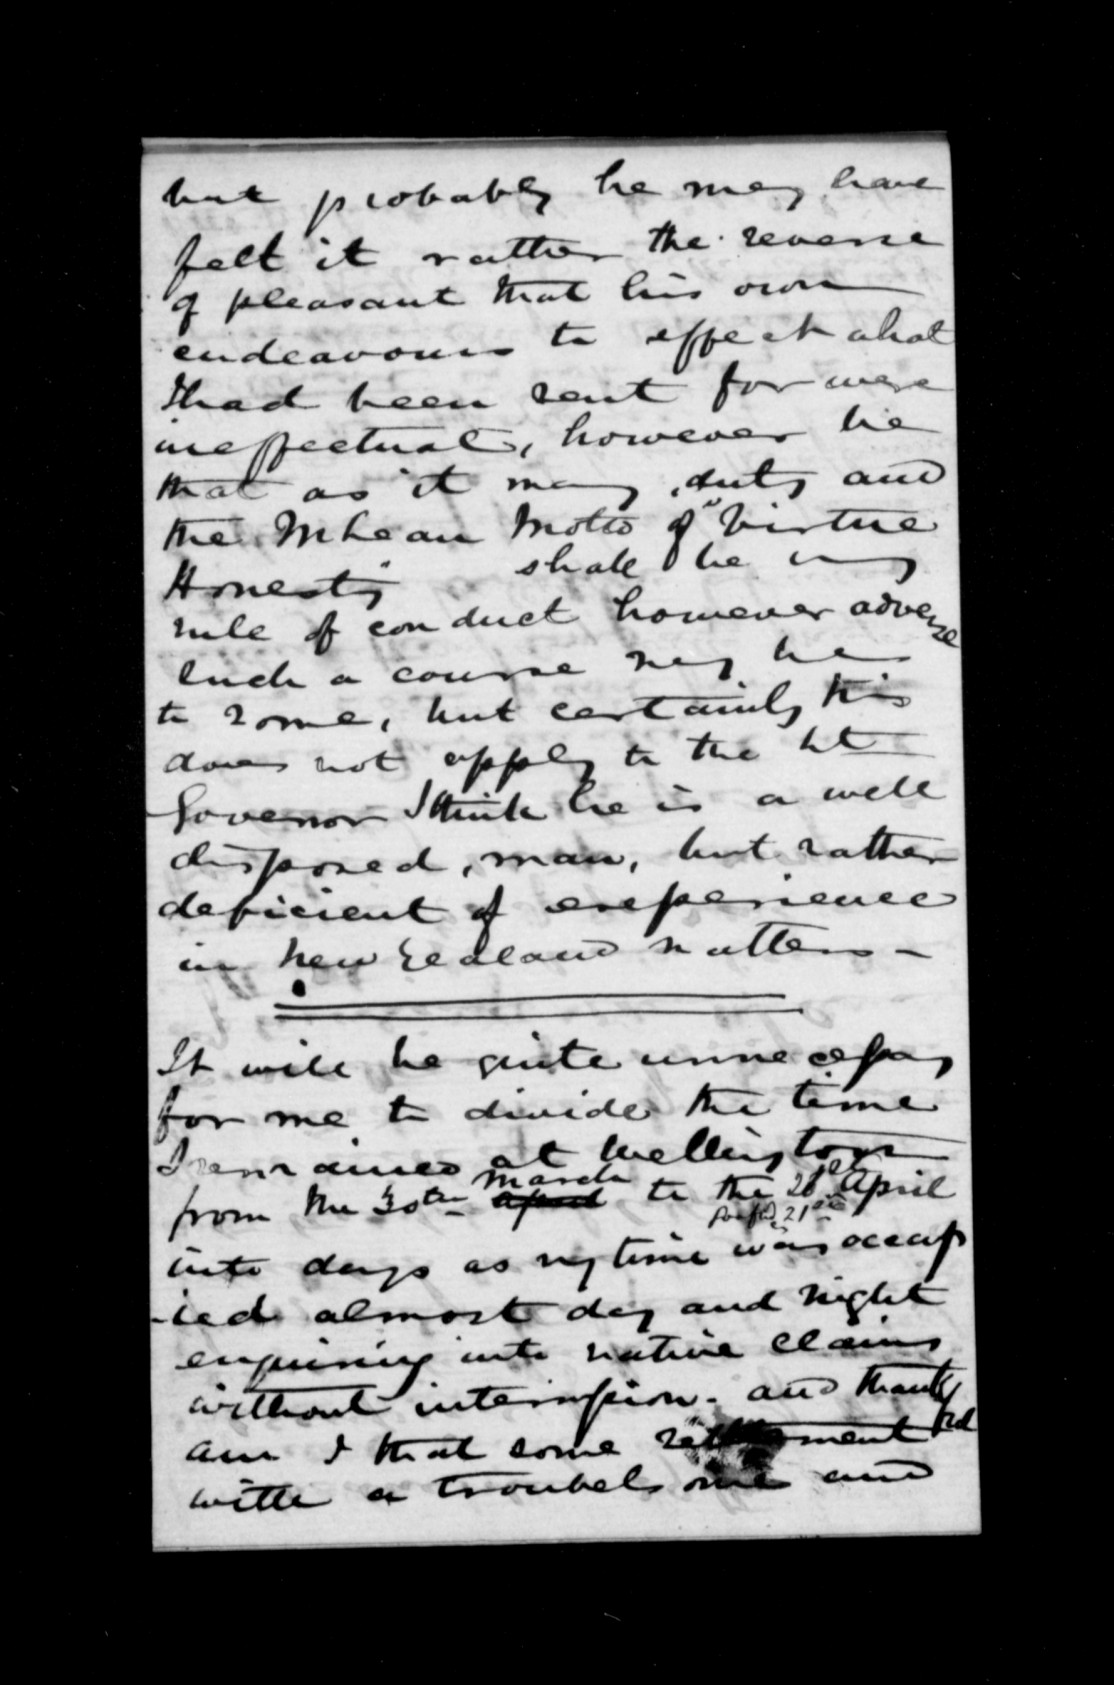 but probably he may have
felt it rather the reverse
of pleasant that his own
endeavours to effect what
I had been sent for were
ineffectual, however be
that as it may, duty and
the McLean Motto of "Virtue
Honesty" shall be my
rule of conduct however adverse
such a course may be
to some, but certainly this
does not apply to the Lt
Governor I think he is a well
disposed, man, but rather
deficient of experience
in New Zealand matters -
It will be quite unnecessary
for me to divide the time
I remained at Wellington
from the 30th april march to the 20th April
21st
into days as my time was occup
-ied almost day and night
enquiring into native claims
without intermission. and
am I that some settlement
with a troubelsome and